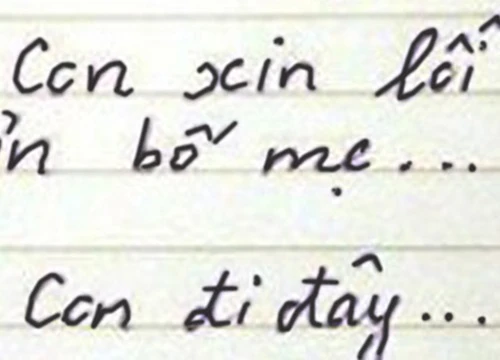 Con xin lỗi
bố mẹ...
Con đi đây...